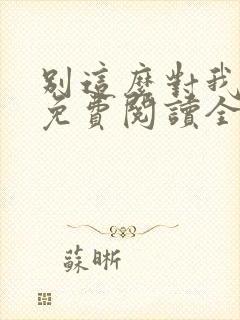 別這麼對我
免費閱讀全
蘇晰